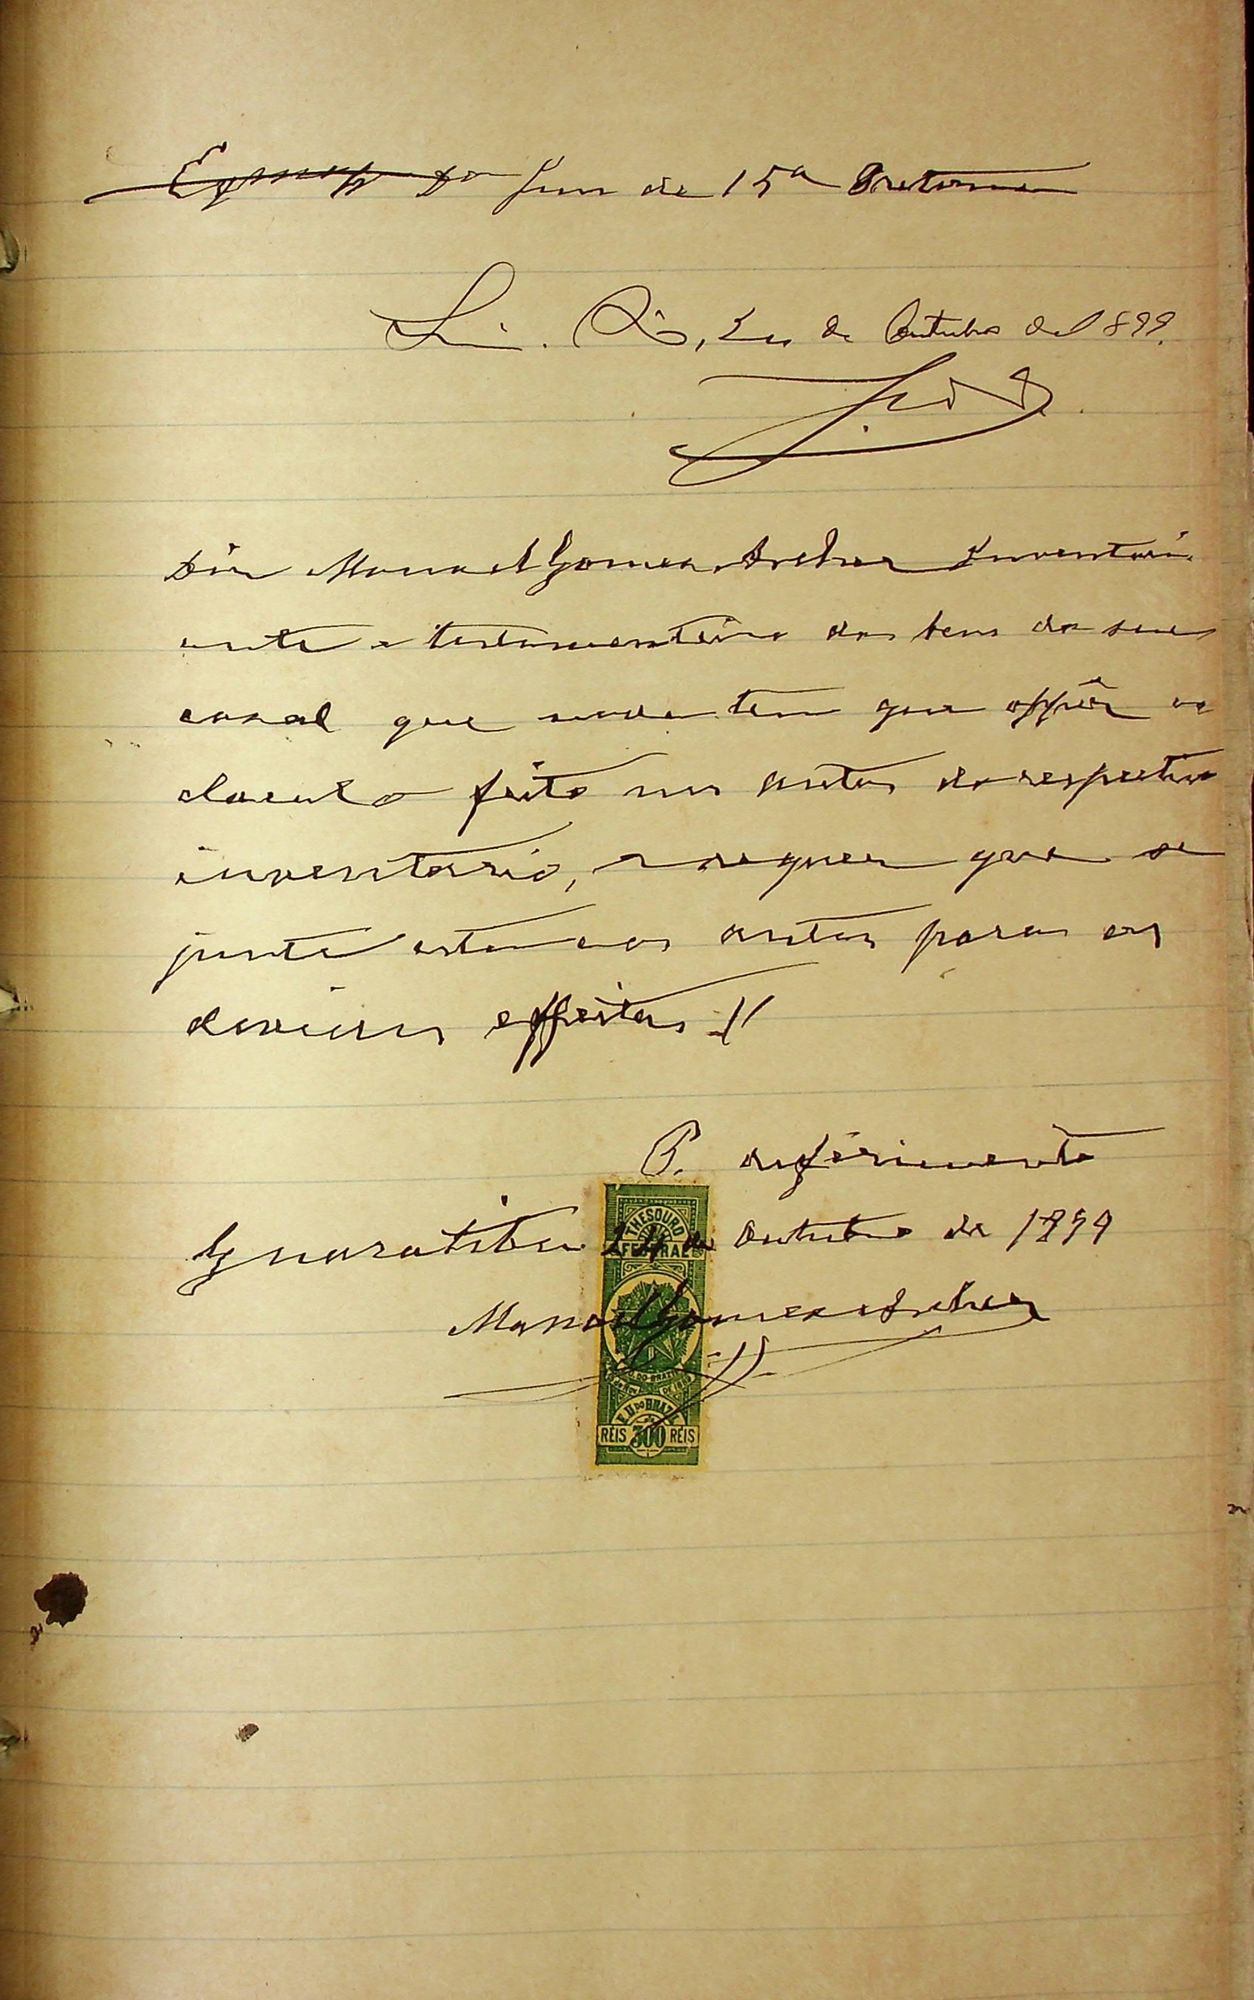 Exmo Sr Dr Juiz da 15ª Pretoria
Sim. Rio, de Outubro de 1899.
Diz Manoel Gomes Archer Inventari
ante e testamenteiro dos bens do seu
casal que nada tem que oppôr ao
calculo feito nos autos do respectivo
inventario, e requer que se
junte esta aos autos para os
devidos effeitos //
P. deferimento
Guaratiba 24 de Outubro de 1899
Manoel Gomes Archer
THESOURO
FEDERAL
E.U. DO BRAZIL
RÉIS 300 RÉIS